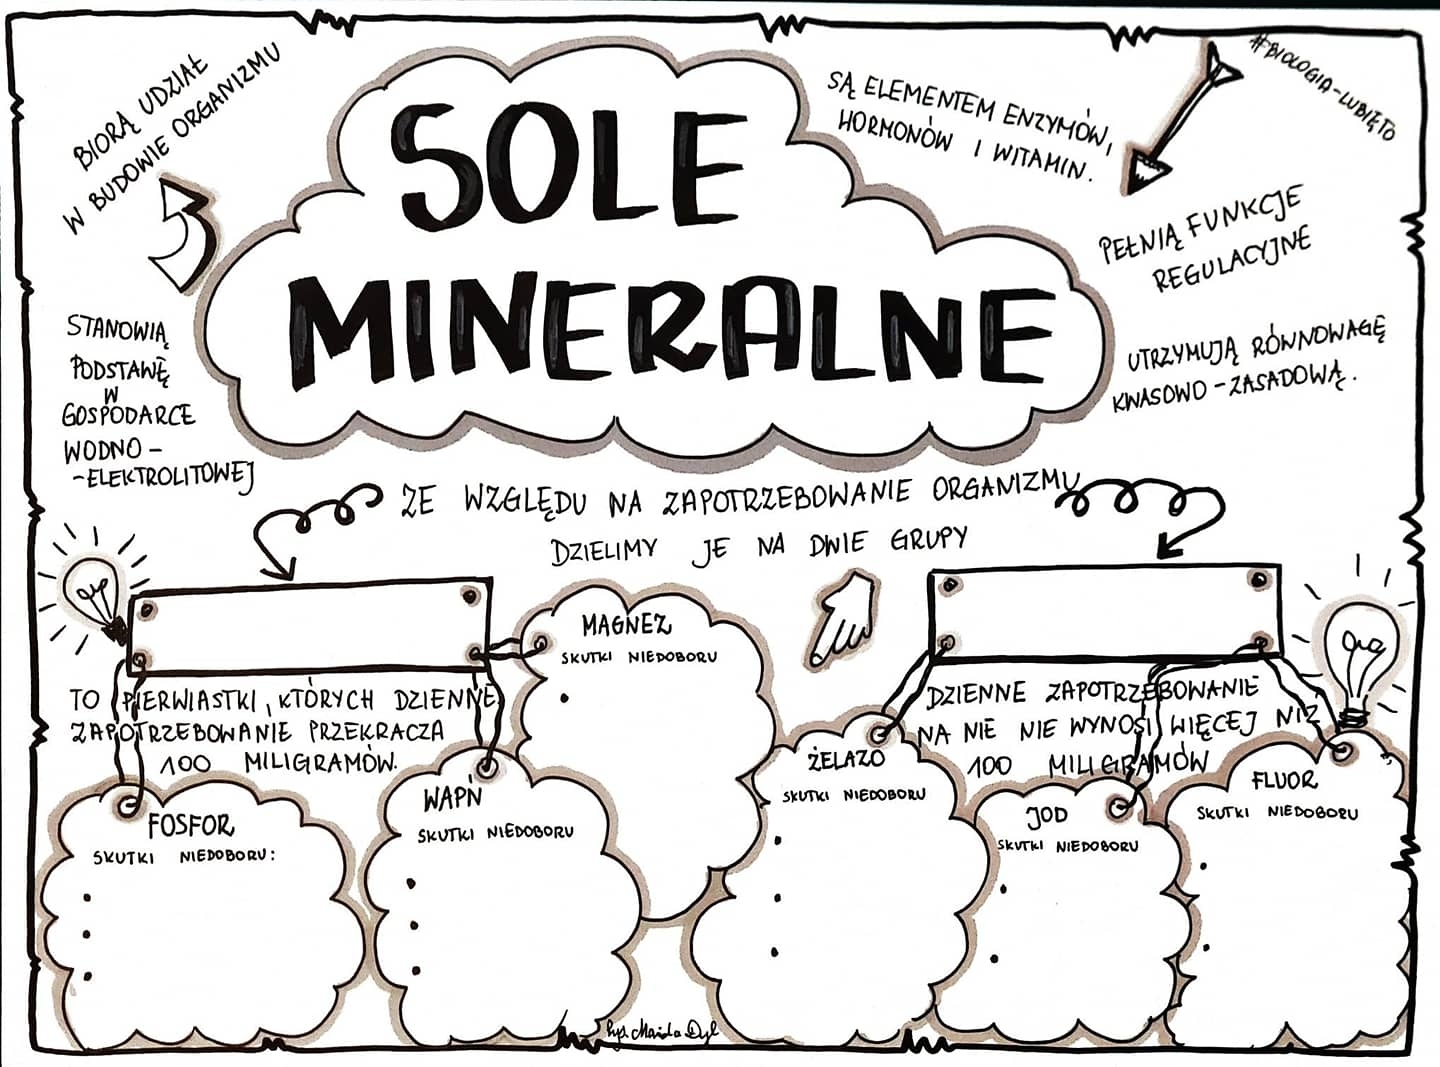 BIORĄ UDZIAŁ
W BUDOWIE ORGANIZMU
SOLE
MINERALNE
SĄ ELEMENTEM ENZYMÓW,
HORMONÓW I WITAMIN.
#BIOLOGIA-LUBIĘTO
PEŁNIĄ FUNKCJE
REGULACYJNE
UTRZYMUJĄ RÓWNOWAGĘ
KWASOWO-ZASADOWĄ.
STANOWIĄ
PODSTAWĘ
W
GOSPODARCE
WODNO-
-ELEKTROLITOWEJ
ZE WZGLĘDU NA ZAPOTRZEBOWANIE ORGANIZMU
DZIELIMY JE NA DWIE GRUPY
TO PIERWIASTKI, KTÓRYCH DZIENNE
ZAPOTRZEBOWANIE PRZEKRACZA
100 MILIGRAMÓW.
FOSFOR
SKUTKI NIEDOBORU:
WAPŃ
SKUTKI NIEDOBORU
MAGNEZ
SKUTKI NIEDOBORU
DZIENNE ZAPOTRZEBOWANIE
NA NIE NIE WYNOSI WIĘCEJ NIŻ
100 MILIGRAMÓW
ŻELAZO
SKUTKI NIEDOBORU
JOD
SKUTKI NIEDOBORU
FLUOR
SKUTKI NIEDOBORU